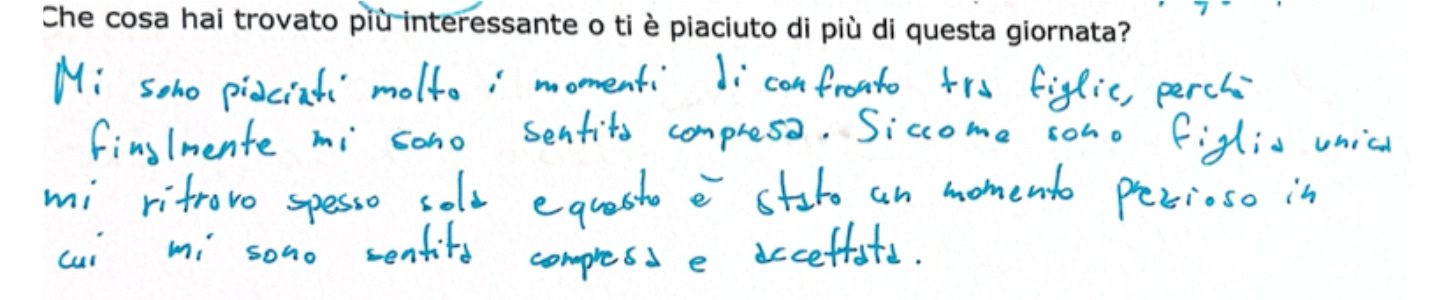 Che cosa hai trovato più interessante o ti è piaciuto di più di questa giornata?
Mi sono piaciuti molto i momenti di confronto tra figlie, perchè
finalmente mi sono sentita compresa. Siccome sono figlia unica
mi ritrovo spesso sola e questo è stato un momento prezioso in
cui mi sono sentita compresa e accettata.